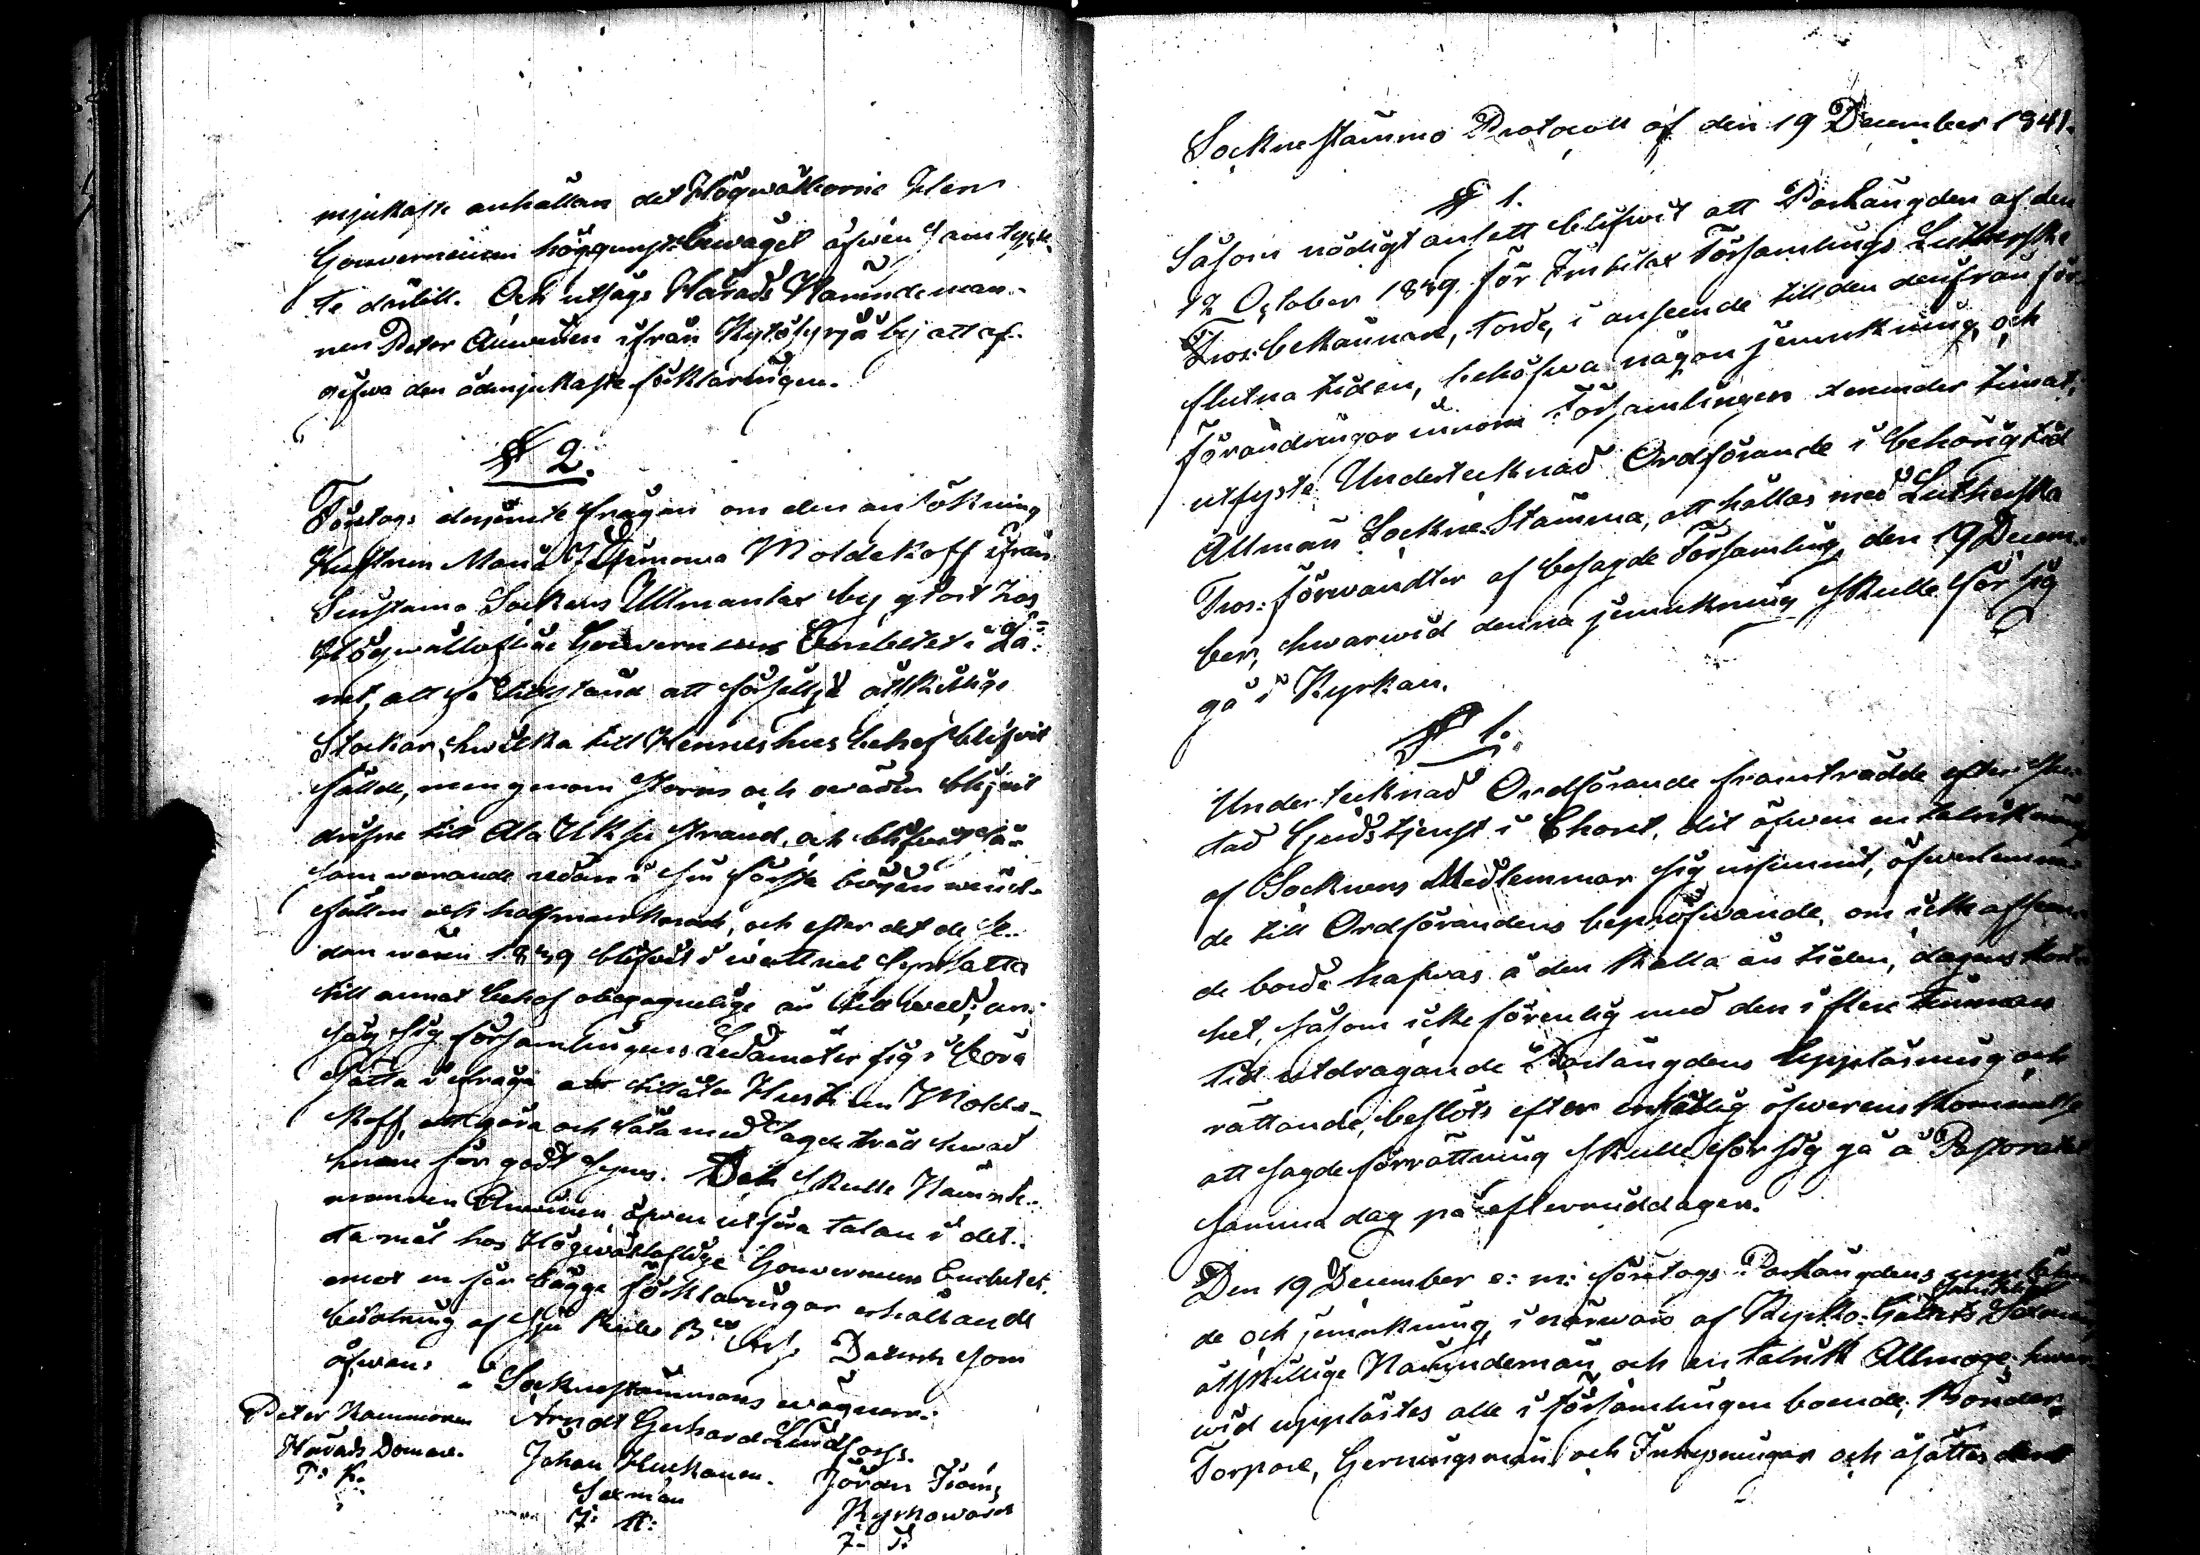 mjukaste anhållan det Högwälborne Herr
Gouverneuren höggunst:bewåget äfwen samtyck-
te dertill. Och utsågs Härads Nämndeman-
nen Peter Anwinen ifrån Kytösyrjä by att af-
gifwa den ödmjukaste förklaringen.
§ 2.
Företogs derjemte frågan om den ansökning
Hustrun Maria Moldakoff ifrån
Suistamo Sockens Ullmanlax by gjort hos
Höglwälloflige Gouverneurs Embetet i Lä-
net, att få tillstånd att försällja åtskillige
Stockar, hwilka till Hennes hus behof blifvit
fällde, men genom storm och owäder blifvit
drifne till Ala Uksu strand, och blifvit så-
som warande redan i sin första början wind-
fällen och halfmurknade, och efter det de se-
dan wåren 1839 blifvit i wattnet
till annat behof obegagnelige än till wed; an-
såg sig församlingens Ledamöter sig i böra
sätta i fråga att tillåta Hustrun Molda-
koff, att göra och låta med sagde träd hwad
henne för godt synes. Och skulle Nämnde-
mannen Anwinen äfwen utföra talan i det-
ta mål hos Höglwälloflige Gouverneurs Embetet.
emot en för bägge förklaringar erhållande
betalning af sju Rubel B:co Datum som
ofwan.
Socknestämmans wägnar:
Peter Arndt Gerhard Lindfors.
Härads Domare. Johan Huckanen. Jöran
P: K. Sexman Kyrkowärd
J: H: J: I:
Sockne stämmo Protocoll af den 19 December 1841.
§ 1.
Såsom nödigt ansett blifwit att Parlängden af den
12 October 1839 för Imbilax Församlings Lutherske
Tros:bekännare, torde, i anseende till den derifrån för-
flutna tiden, behöfwa någon jemnkning, och
förändringar inom Församlingen timat,
utlyste Undertecknad Ordförande i behörig tid
Allmän Sockne:Stämma, att hållas med Lutherska
Tros:förwandter af besagde Församling den 19 Decem-
ber, hwarwid denna jemnkning skulle för sig
gå i Kyrkan.
§ 1.
Undertecknad Ordförande framträdde efter slu-
tad Gudstjenst i Choret, dit äfwen en talrik mängd
af Socknens Medlemmar sig infunnit, öfwerlemna-
de till Ordförandens bepröfwande, om icke afseen-
de borde hafwas å den kalla års tiden, dagens kort-
het, såsom icke förenlig med den i flere timmars
tid utdragande Parlängdens Uppläsning och
rättande, beslöts efter enhällig öfwerenskommelse
att sagde förrättning skulle för sig gå å Pastoratet
samma dag på eftermiddagen.
Den 19 December e: m: företogs Parlängdens
de och jemnkning i närwaro af Kyrko:
åtskillige Nämndemän, och en talrik Allmoge, hwar-
wid upplästes alle i församlingen boende, Bönder,
Torpare, Gerningsmän och Inhysningar och åsattes